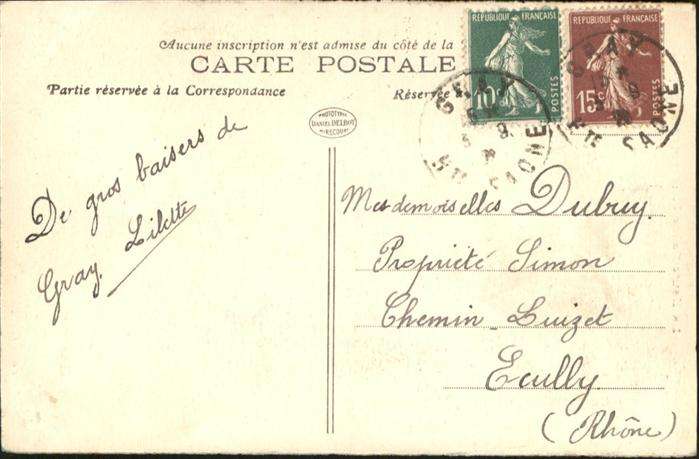 Aucune inscription n'est admise du côté de la
CARTE POSTALE
Partie réservée à la Correspondance
Réservée
PHOTOTYPIE
DANIEL DELBOY
MIRECOURT
De gros baisers de
Gray. Lilette
REPUBLIQUE FRANÇAISE
10c
POSTES
REPUBLIQUE FRANÇAISE
15c
POSTES
GRAY
Hte SAONE
GRAY
Hte SAONE
Mesdemoiselles Dubuy
Propriété Simon
Chemin Luizet
Ecully
(Rhône)